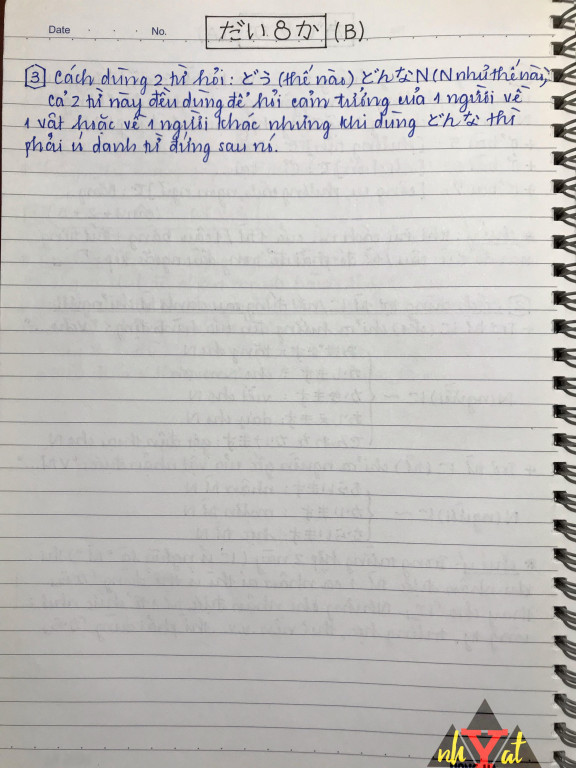 Date . . . No. だい8か (B)
3 Cách dùng 2 từ hỏi: どう (thế nào) どんなN (N như thế nào)
cả 2 từ này đều dùng để hỏi cảm tưởng của 1 người về
1 vật hoặc về 1 người khác nhưng khi dùng どんな thì
phải có danh từ đứng sau nó.
nhYat